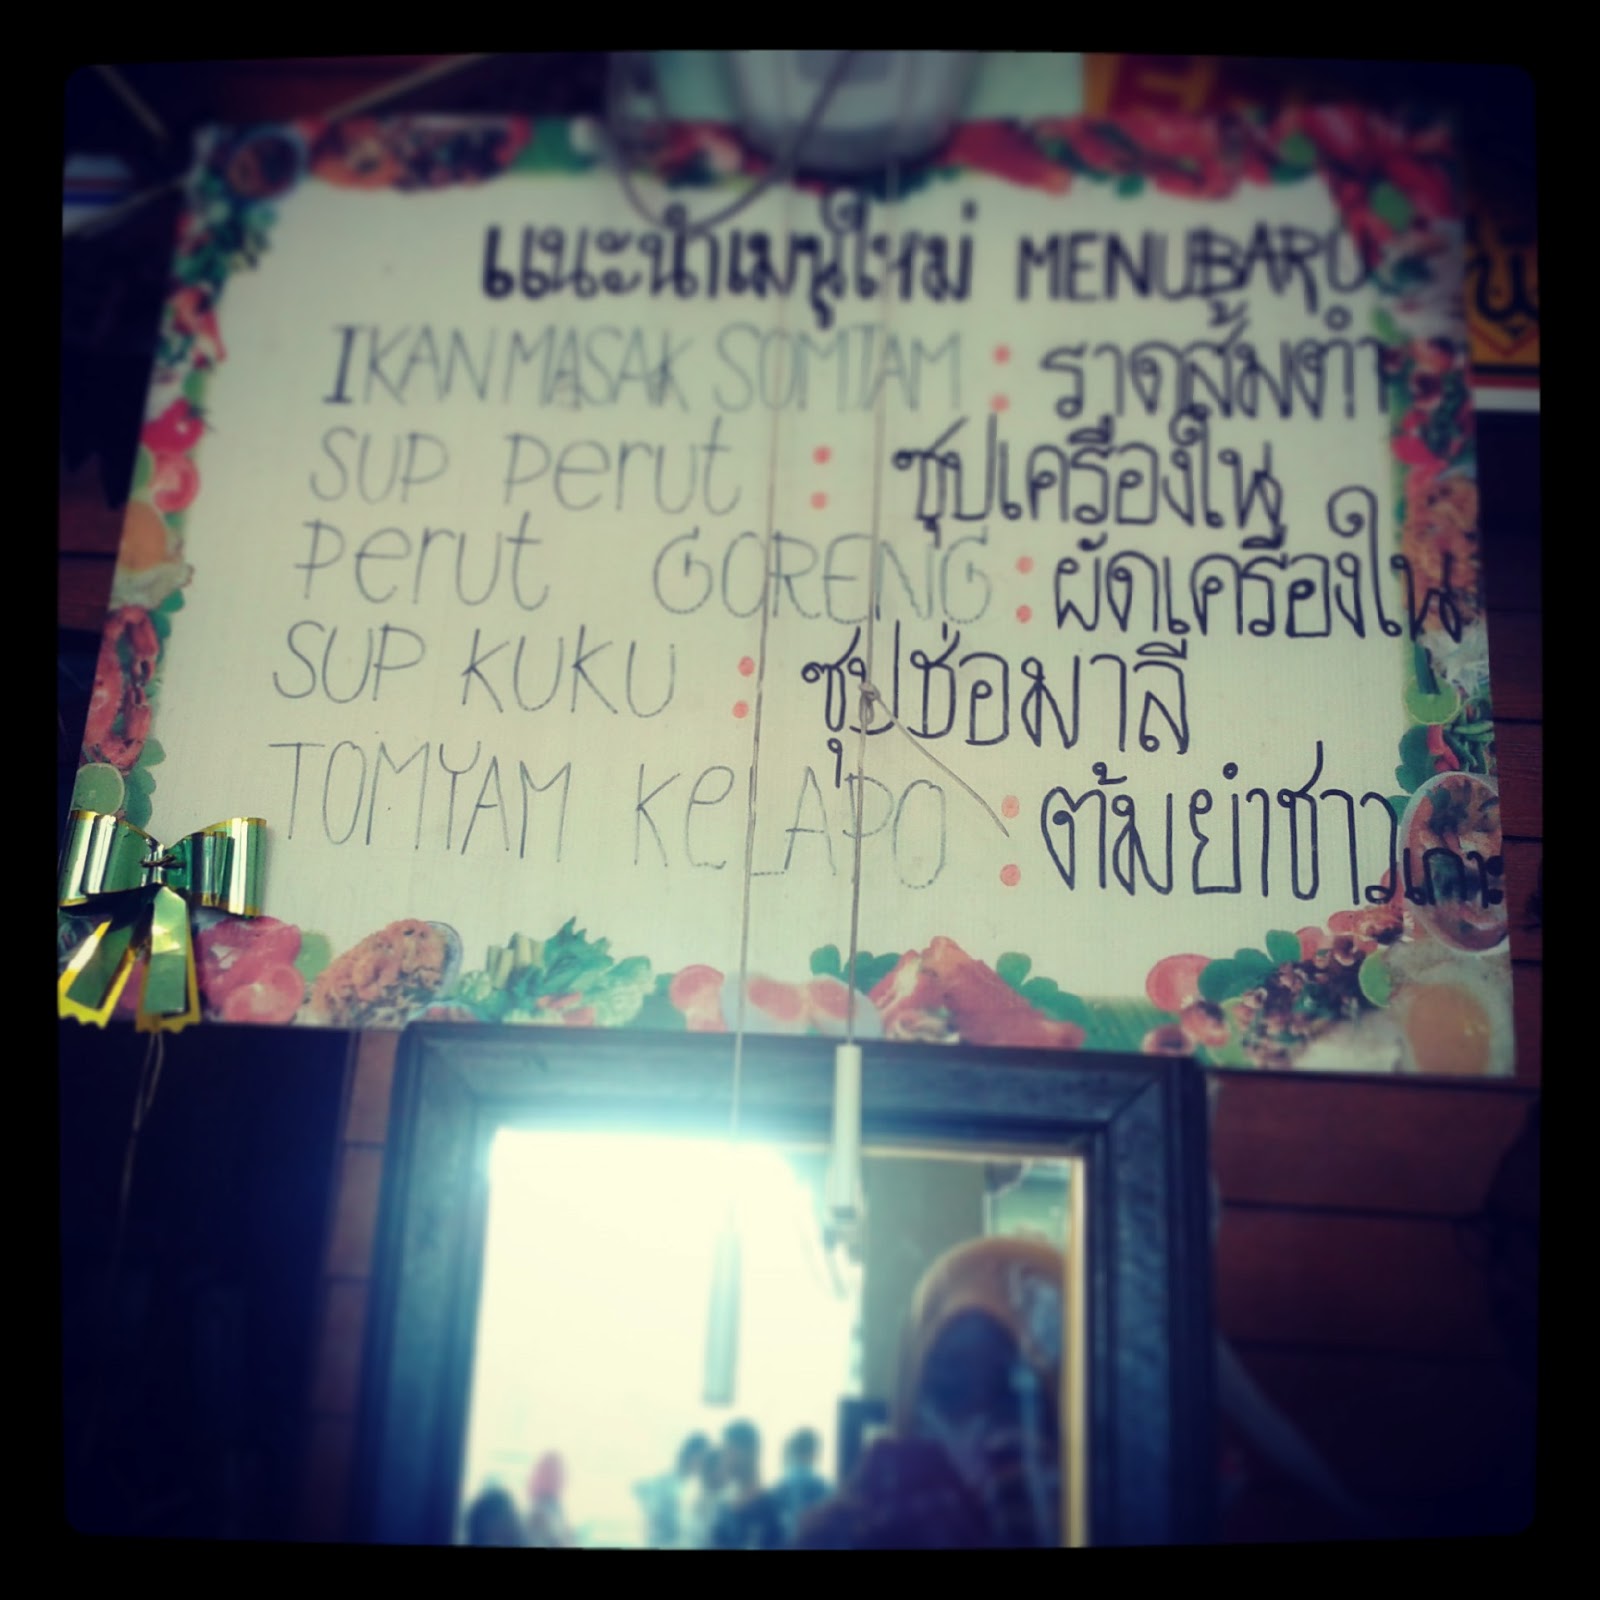 แนะนำเมนูใหม่ MENUBARU
IKAN MASAK SOMTAM : ราดส้มตำ
SUP Perut : ซุปเครื่องใน
Perut GORENG : ผัดเครื่องใน
SUP KUKU : ซุปช่อมาลี
TOMYAM KeLAPO : ต้มยำชาวเกาะ